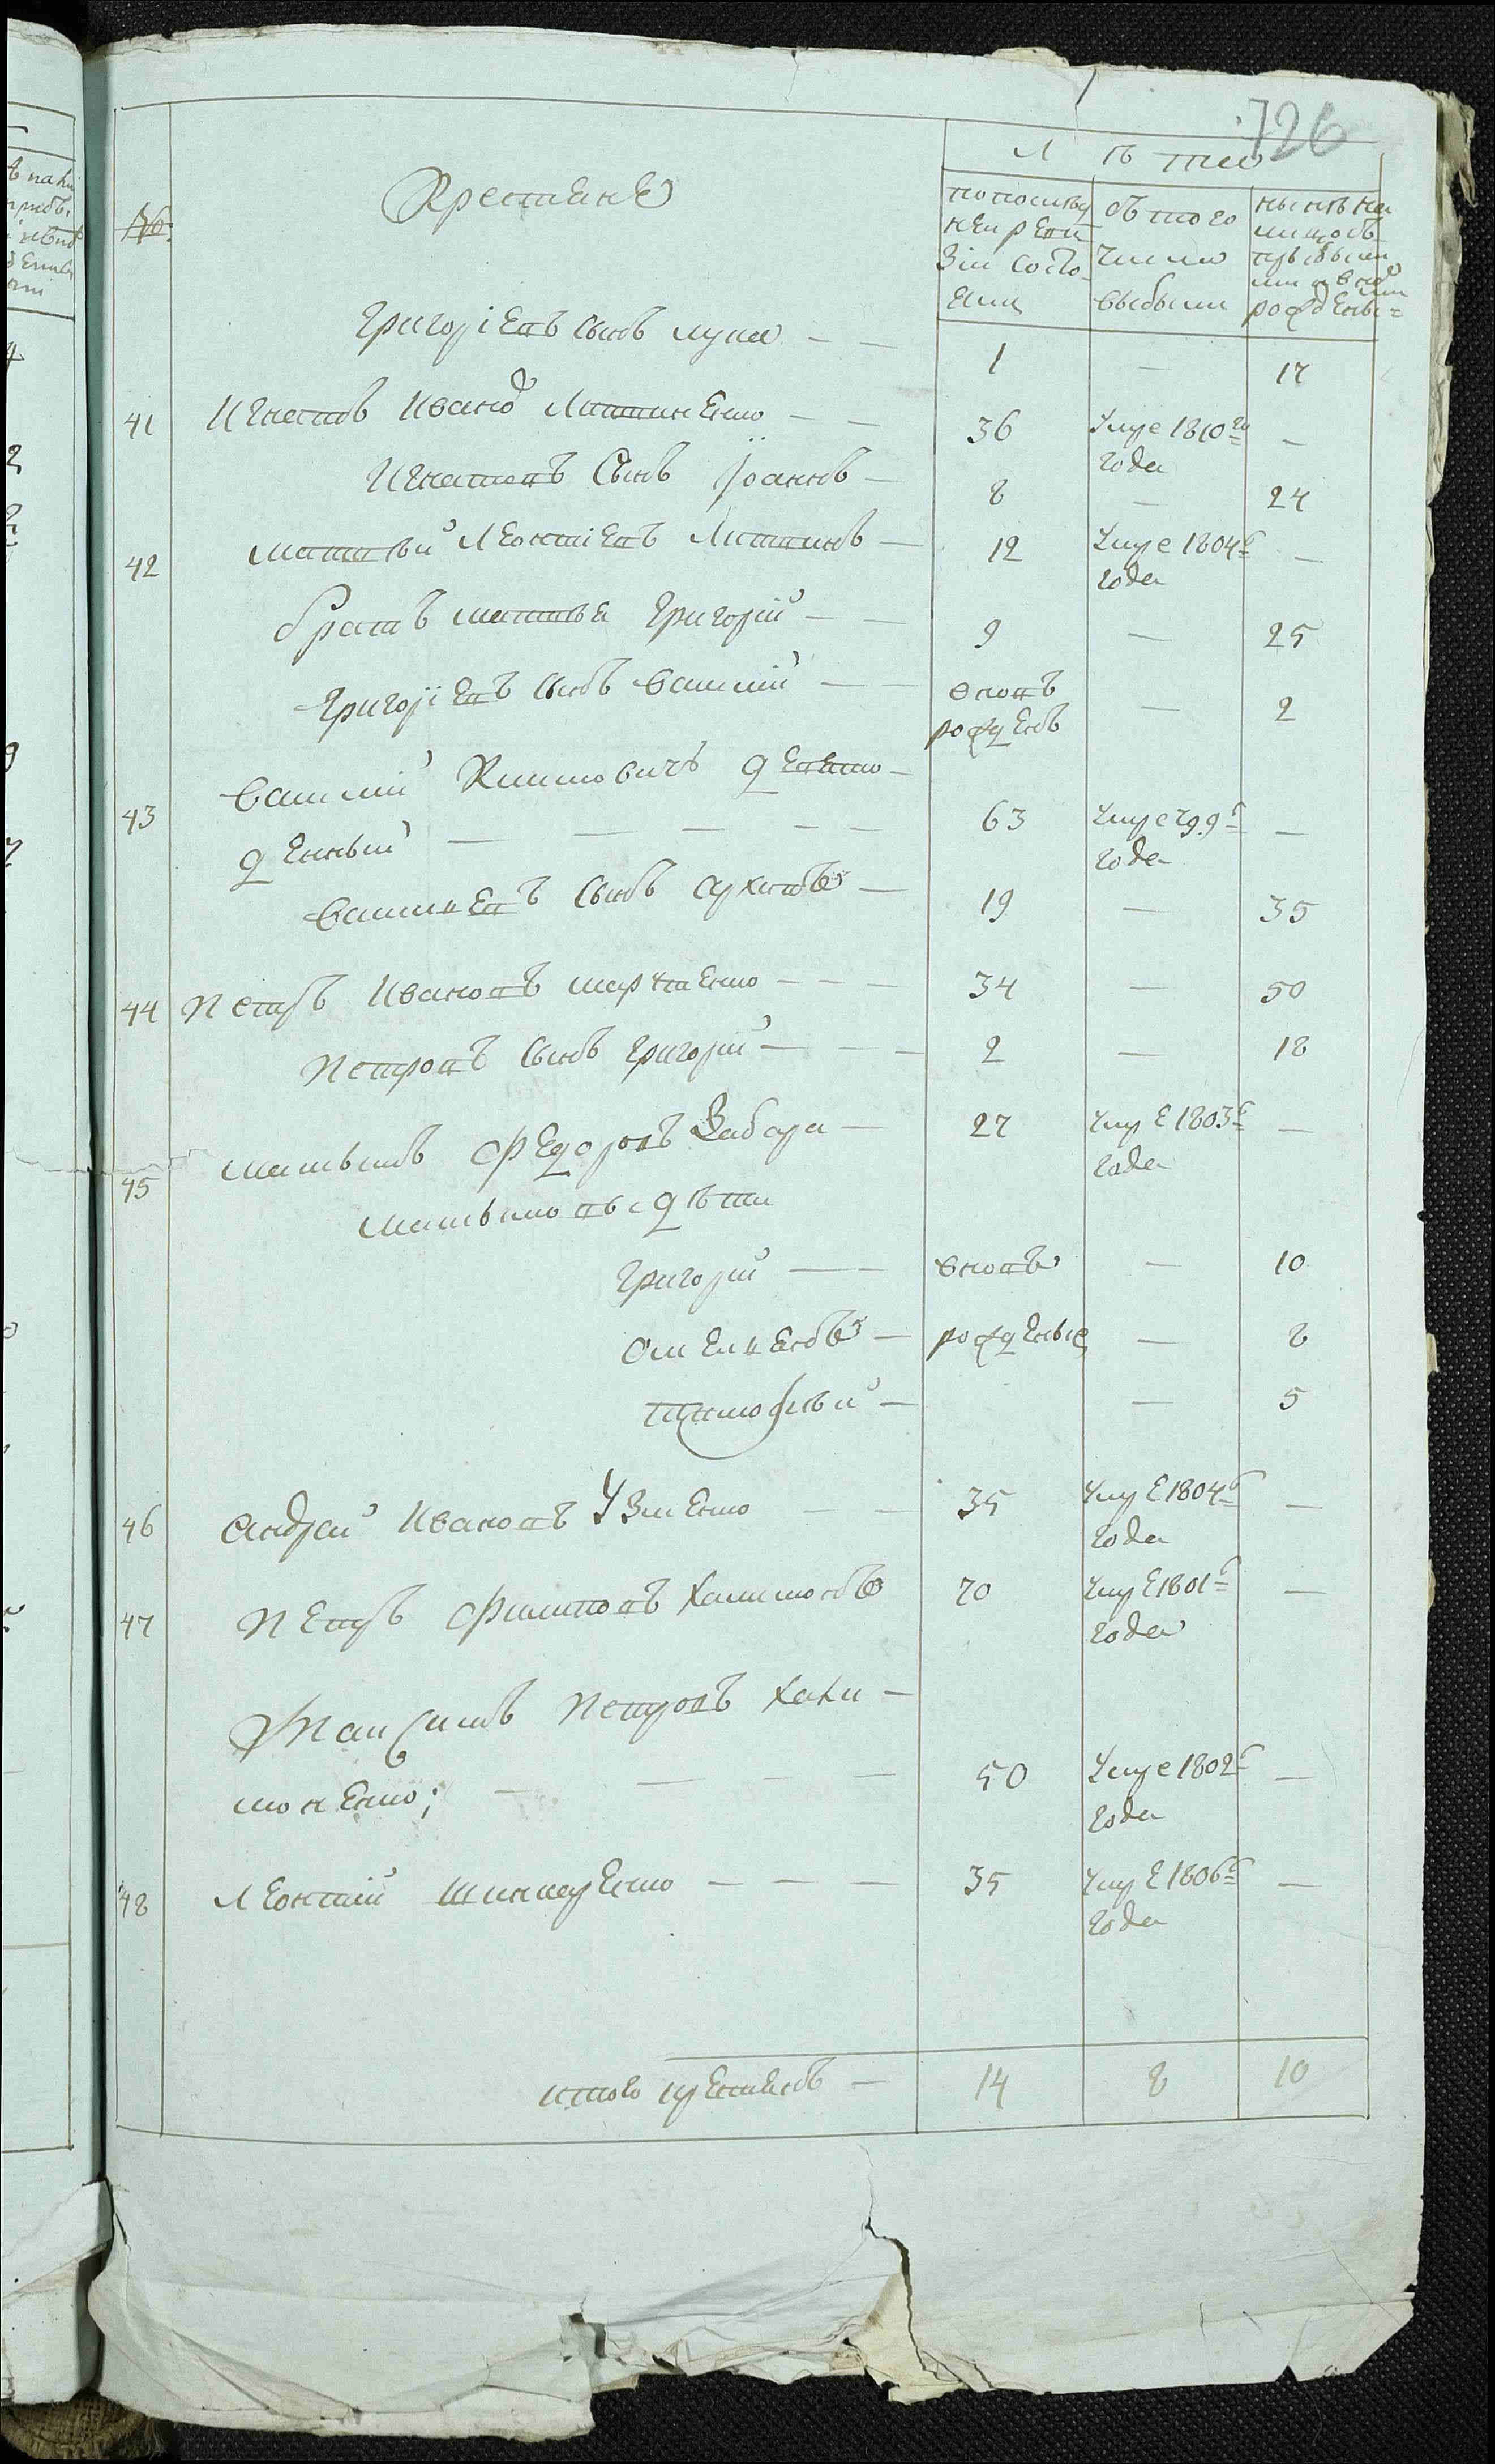 726
№
Крестяне
Лѣта
по последней ревизіи состояли
съ того числа выбыли
нынѣ на лицо съ прибылыми и вновь рожденными
Григоріевъ сынъ Лука — — 1 — 17
41 Игнатъ Ивановъ Литвиненко — — 36 Умре 1810го года —
Игнатовъ сынъ Іоаннъ — 8 — 24
42 Матвѣй Леонтіевъ Литвинъ — 12 Умре 1804г года —
братъ Матвѣя Григорій — — 9 — 25
Григоріевъ сынъ Василій — — вновь рожденъ — 2
43 Василій Климовичъ
денный — — — — — 63 Умре 799г года —
Васильевъ сынъ — 19 — 35
44 Петръ Ивановъ Марченко — — — 34 — 50
Петровъ сынъ Григорій — — — 2 — 18
45 Федоровъ Забара — 27 Умре 1803г года —
дѣти
Григорій — — вновь — 10
Омелиянъ — рожденые — 8
Тимофѣй — — 5
46 Андрей Ивановъ Узменко — — 35 Умре 1804г года —
47 Петръ Филиповъ 70 Умре 1801г года —
Максимъ Петровъ Хали—
моненко; — — — — 50 Умре 1802г года —
48 Леонтій Шинкаренко — — — 35 Умре 1806г года —
итого крестянъ — 14 8 10